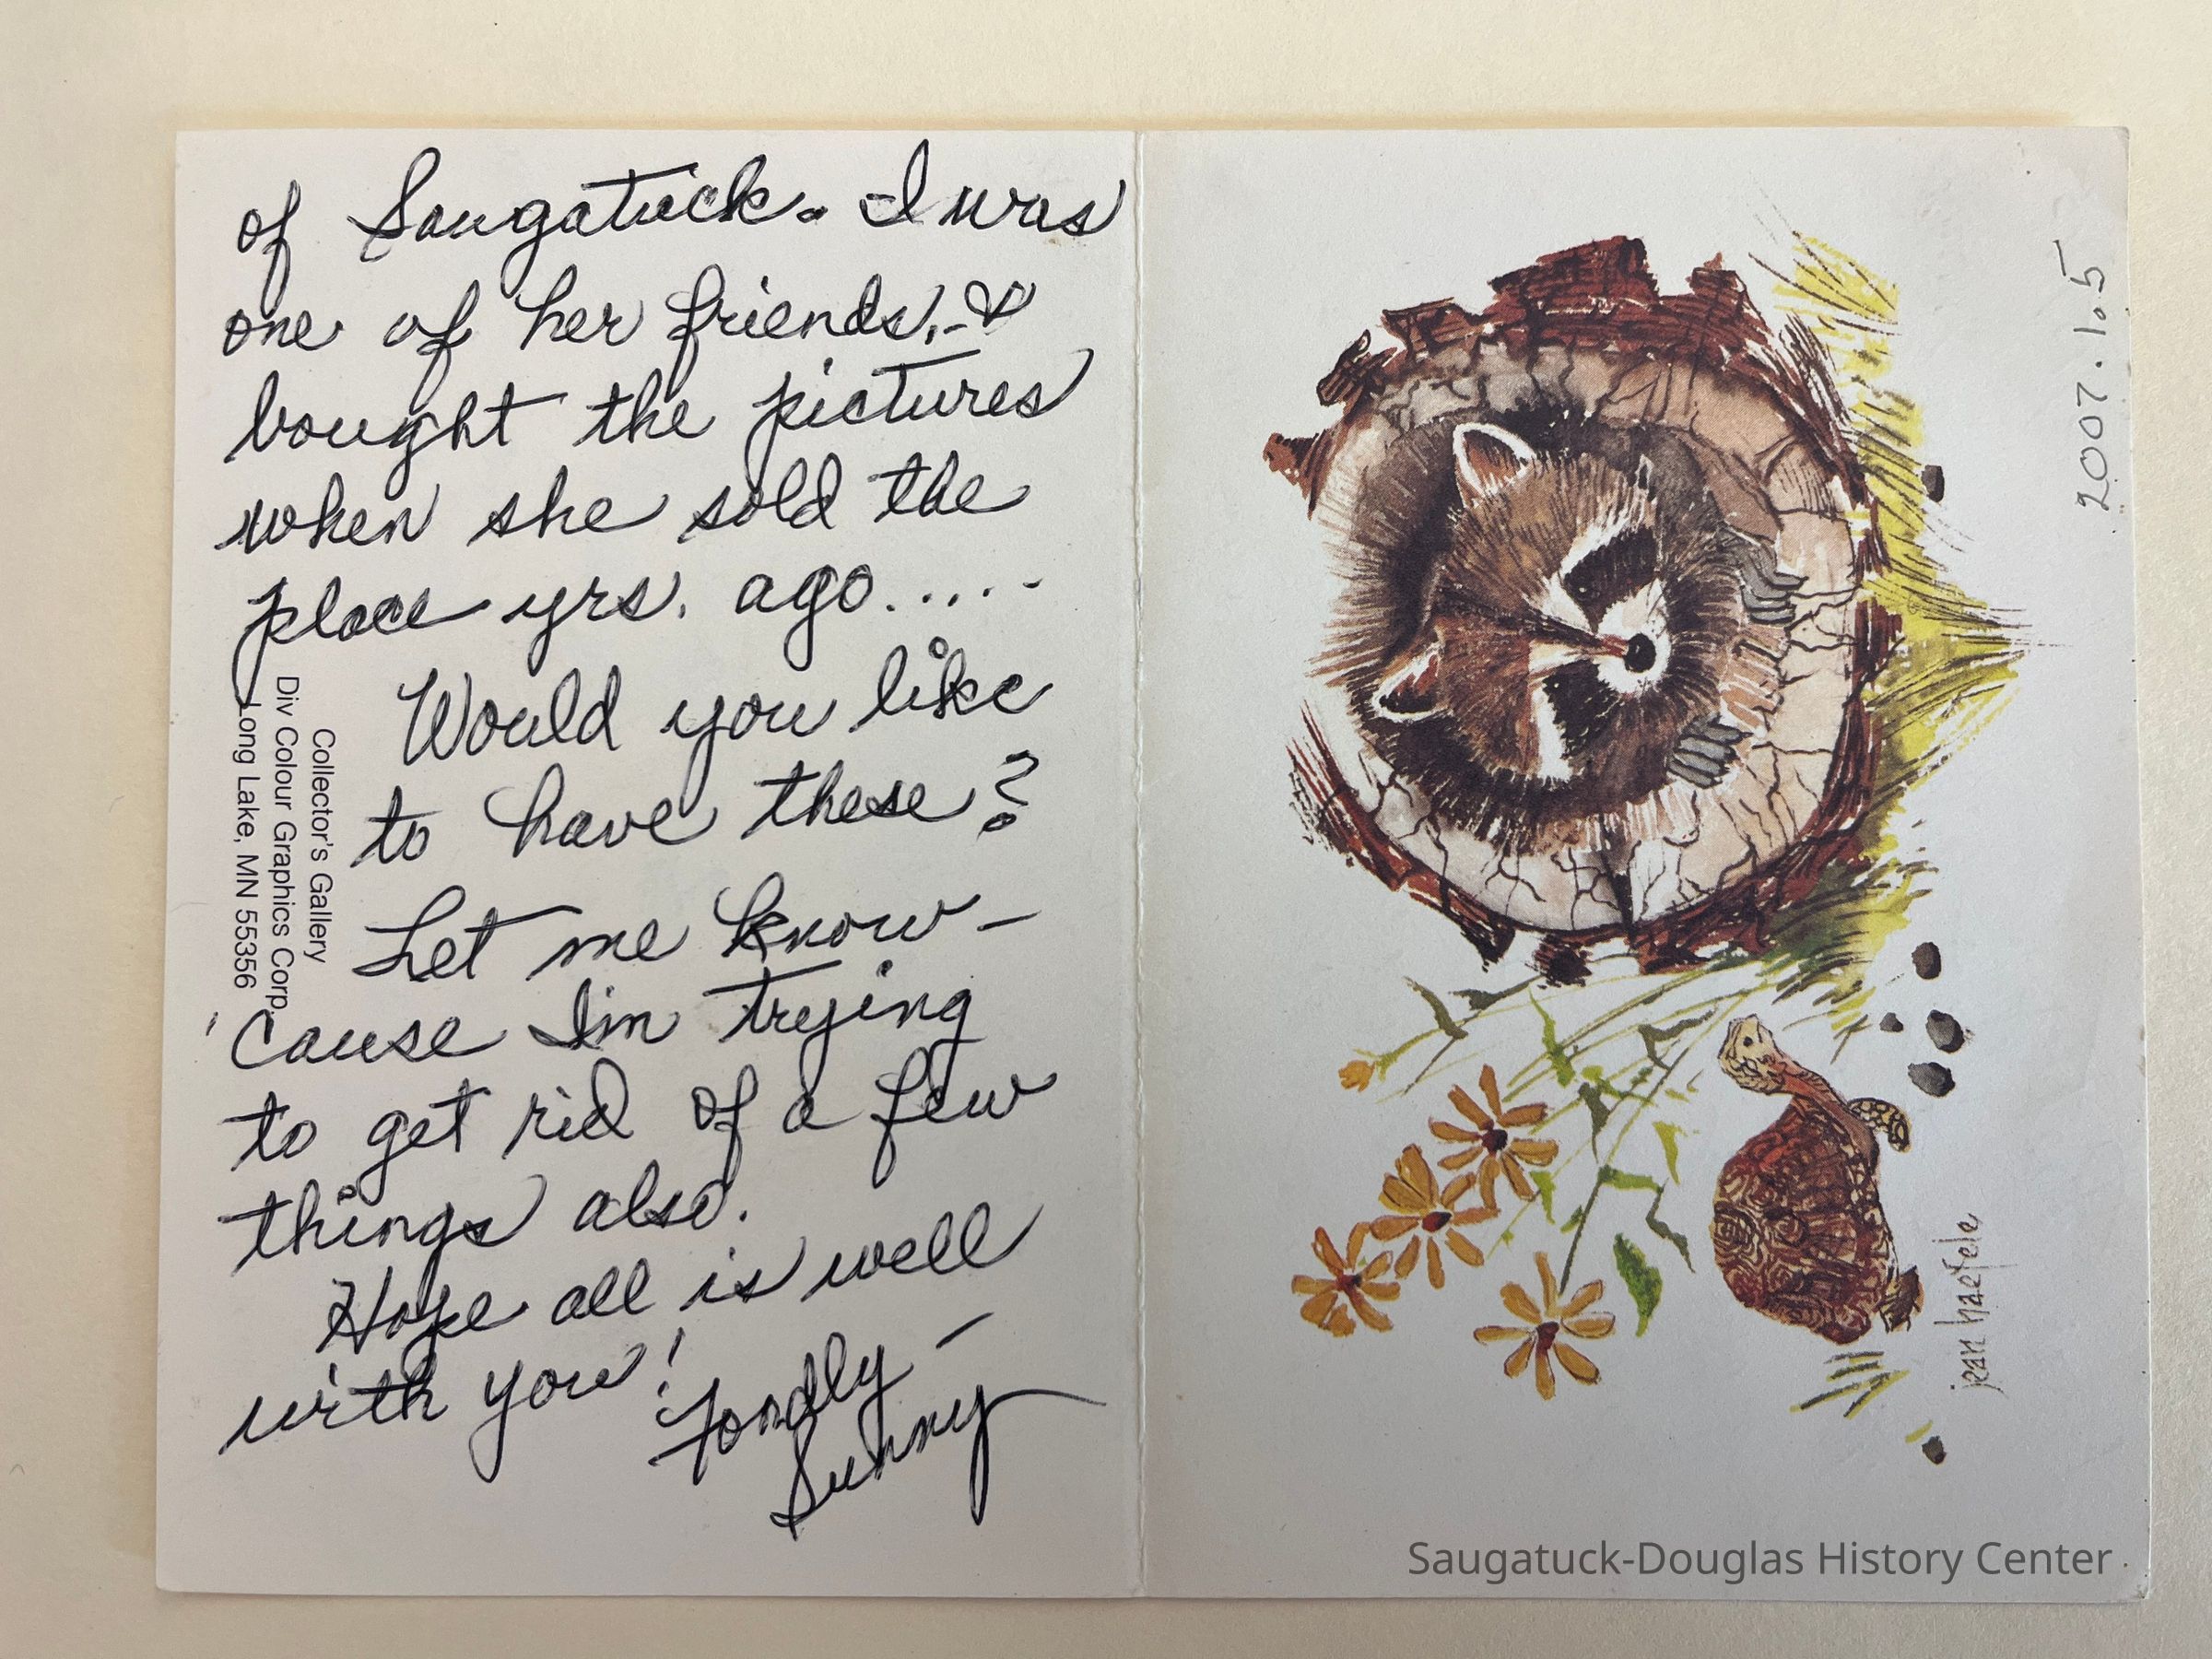 of Saugatuck. I was
one of her friends. - &
bought the pictures
when she sold the
place yrs. ago.....
Would you like
to have these?
Let me know -
'cause I'm trying
to get rid of a few
things also.
Hope all is well
with you!
Fondly -
Sunny
Collector's Gallery
Div Colour Graphics Corp.
Long Lake, MN 55356
2007.1.5
jean haefele
Saugatuck-Douglas History Center